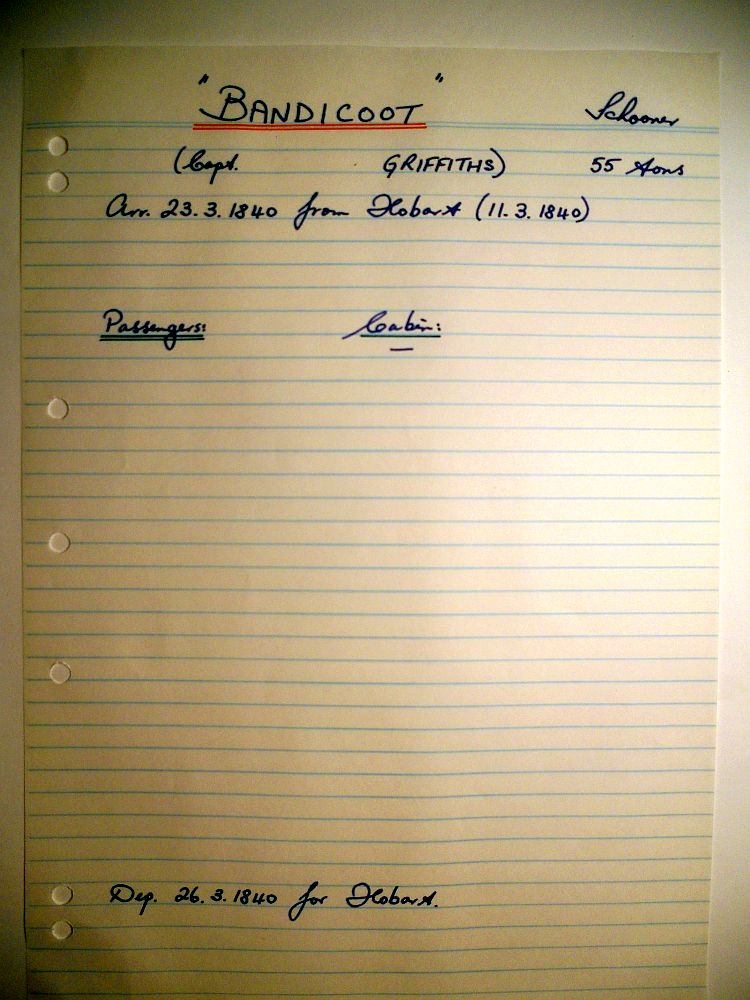 "BANDICOOT" Schooner
(Capt. GRIFFITHS) 55 tons
Arr. 23.3.1840 from Hobart (11.3.1840)
Passengers: Cabin:
—
Dep. 26.3.1840 for Hobart.